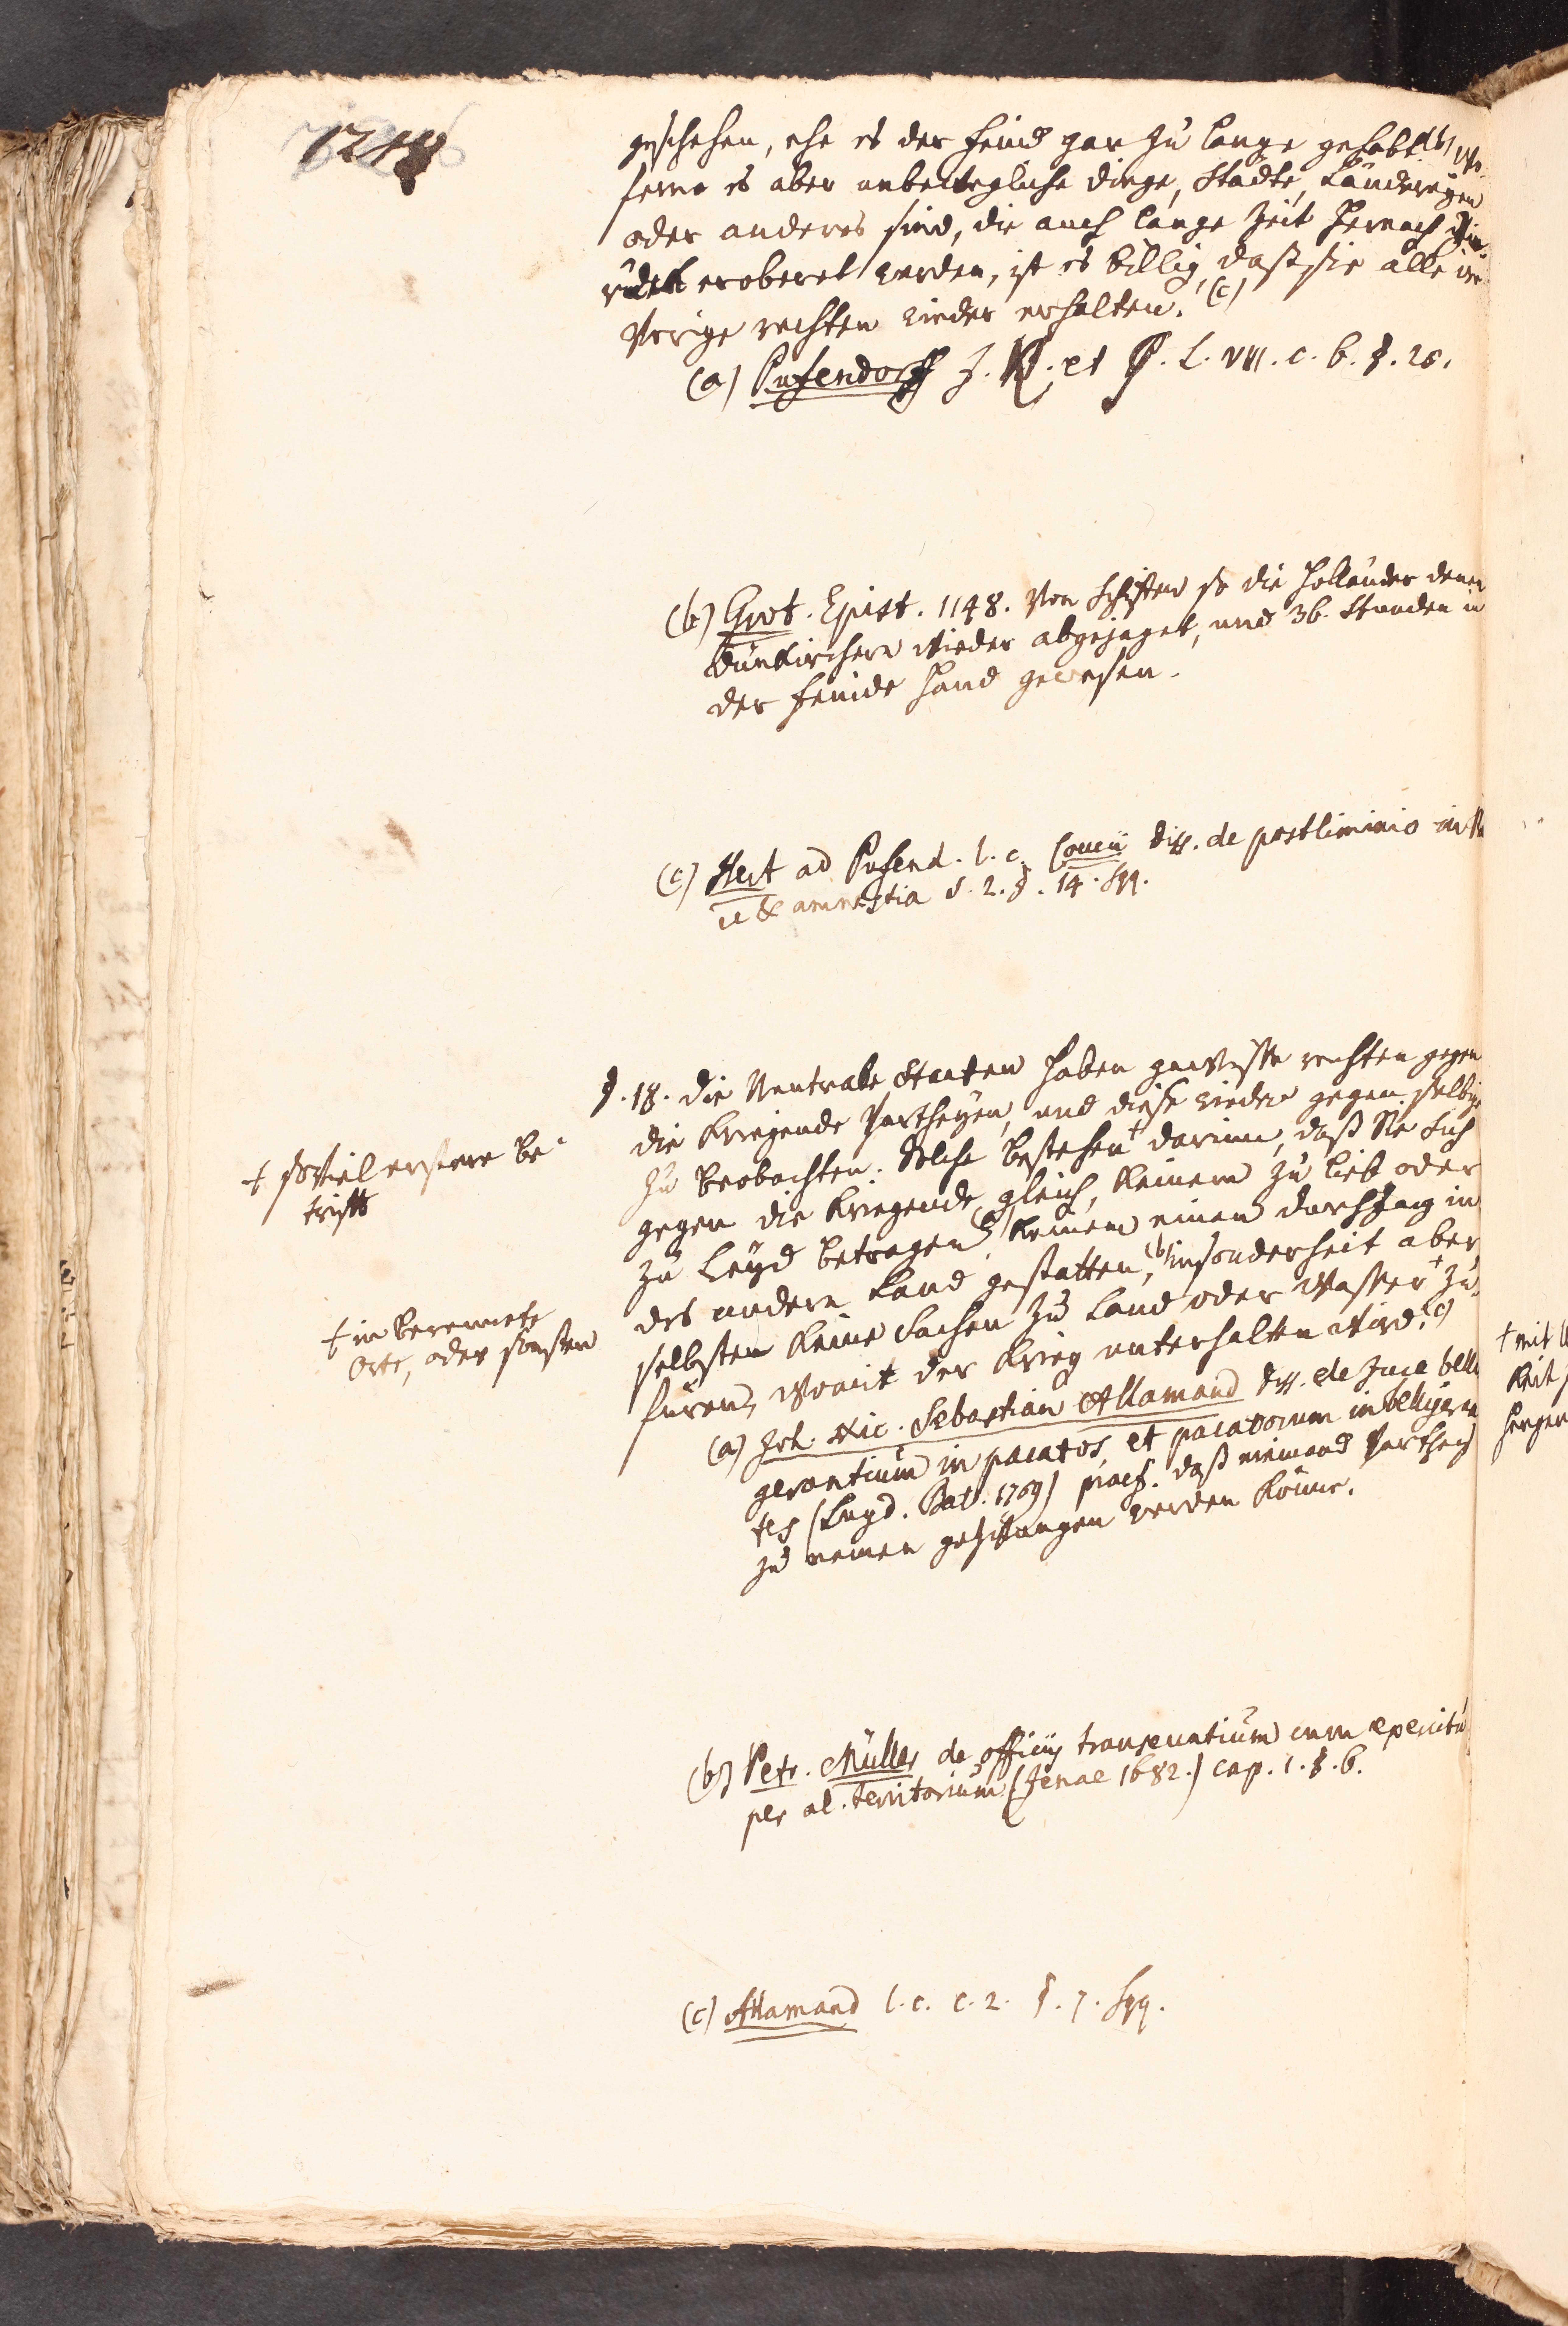 1244
geschehen, ehe es der feind gar zu lange gehabt (b) wo-
ferne es aber unbewegliche dinge, Städte, Ländereyen
oder anderes sind, die auch lange Zeit hernach zu-
rück erobert werden, ist es billig, daß sie alle ihre
Vorige rechten wieder erhalten. (c)
(a) Pufendorff J. N. et G. L. VIII. c. 6. §. 20.
(b) Grot. Epist. 1148. Von Schiffen so die Holländer denen
Dünkirchern wieder abgejaget, und 36. Stunden in
der feinde Hand gewesen.
(c) Hert ad Pufend. l. c. Coccii diss. de postliminio in
& amnestia S. 2. §. 14. sqq.
§. 18. die Neutrale Staaten haben gewisse rechten gegen
die kriegende Partheyen, und diese wieder gegen selbige
zu beobachten. Solche bestehen + darinn, daß Sie Sich
+ soviel erstere be-
trifft
gegen die kriegende gleich, keinem zu lieb oder
zu leyd betragen (a), keinem einen durchzug in
des andern Land gestatten, (b) insonderheit aber
selbsten keine Sachen zu Land oder Wasser + zu-
+ in berennete
Orte, oder sonsten
füren, womit der Krieg unterhalten wird. (c)
(a) Joh. Nic. Sebastian Allamand diss. de Jure belli
gerantium in pacatos, et pacatorum in belligeran
tes (Lugd. Bat. 1769) praes. daß niemand Parthey
zu nemen gezwungen werden könne.
(b) Petr. Müller de officiis transeuntium cum exercitu
per al. territorium (Jenae 1682.) cap. 1. §. 6.
(c) Allamand l. c. c. 2. §. 7. sqq.
+ mit
keit